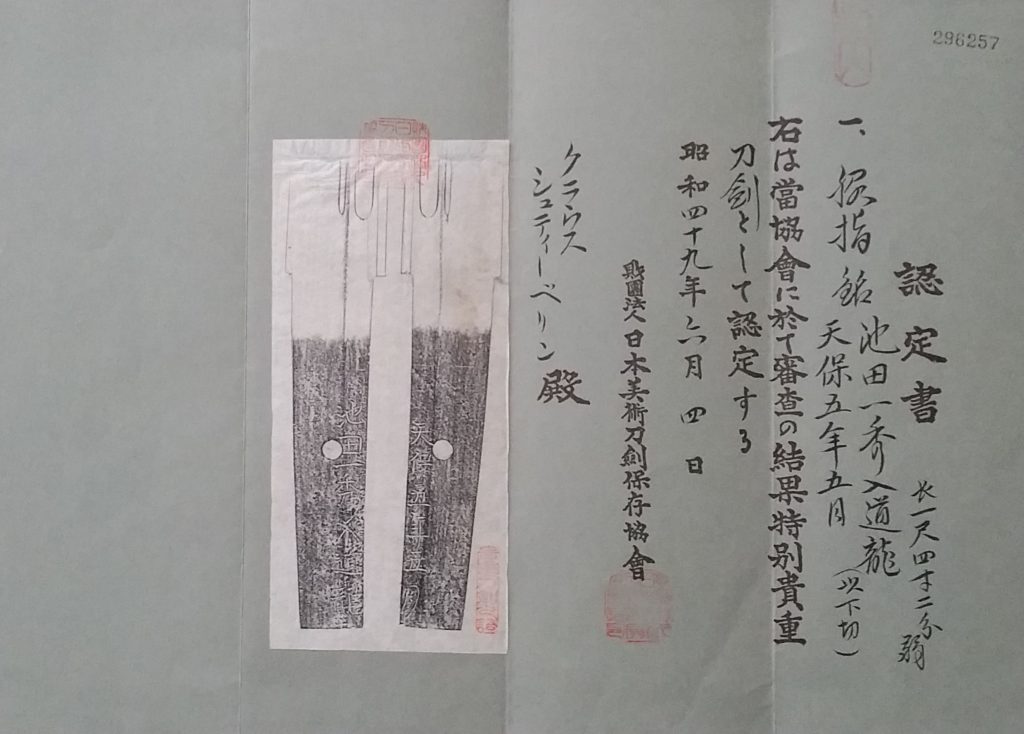 296257
認定書
一、脇指 銘 池田一秀入道龍(以下切)
天保五年五月
長一尺四寸二分弱
右は當協會に於て審査の結果特別貴重
刀劍として認定する
昭和四十九年六月四日
財團法人日本美術刀劍保存協會
クラウス
シュティーベリン 殿
天保五年五月
池田一秀入道龍